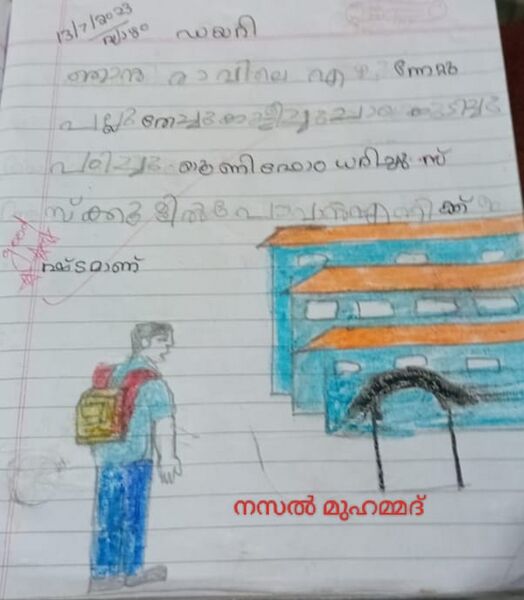 13/7/2023
വ്യാഴം
ഡയറി
ഞാൻ രാവിലെ എഴുന്നേറ്റു
പല്ലുതേച്ചു കുളിച്ചു ചായ കുടിച്ചു
പഠിച്ചു യൂണിഫോം ധരിച്ചു സ്
സ്ക്കൂളിൽ പോവാൻ എനിക്ക് ഇ
ഷ്ടമാണ്
good
നസൽ മുഹമ്മദ്